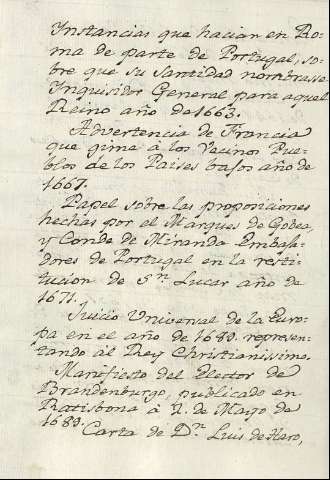 Instancias que hacian en Ro-
ma de parte de Portugal, so-
bre que su Santidad nombrasse
Inquisidor General para aquel
Reino año de 1663.
Advertencia de Francia
que gima à los Vecinos Pue-
blos de los Paises bajos año de
1667.
Papel sobre las proposiciones
hechas por el Marques de Gobea,
y Conde de Miranda Embaja-
dores de Portugal en la resti-
tucion de Sn. Lucar año de
1671.
Juicio Universal de la Euro-
pa en el año de 1680. represen-
tando al Rey Christianissimo.
Manifiesto del Elector de
Brandenburgo, publicado en
Ratisbona à 2. de Mayo de
1689.
Carta de Dn. Luis de Haro,